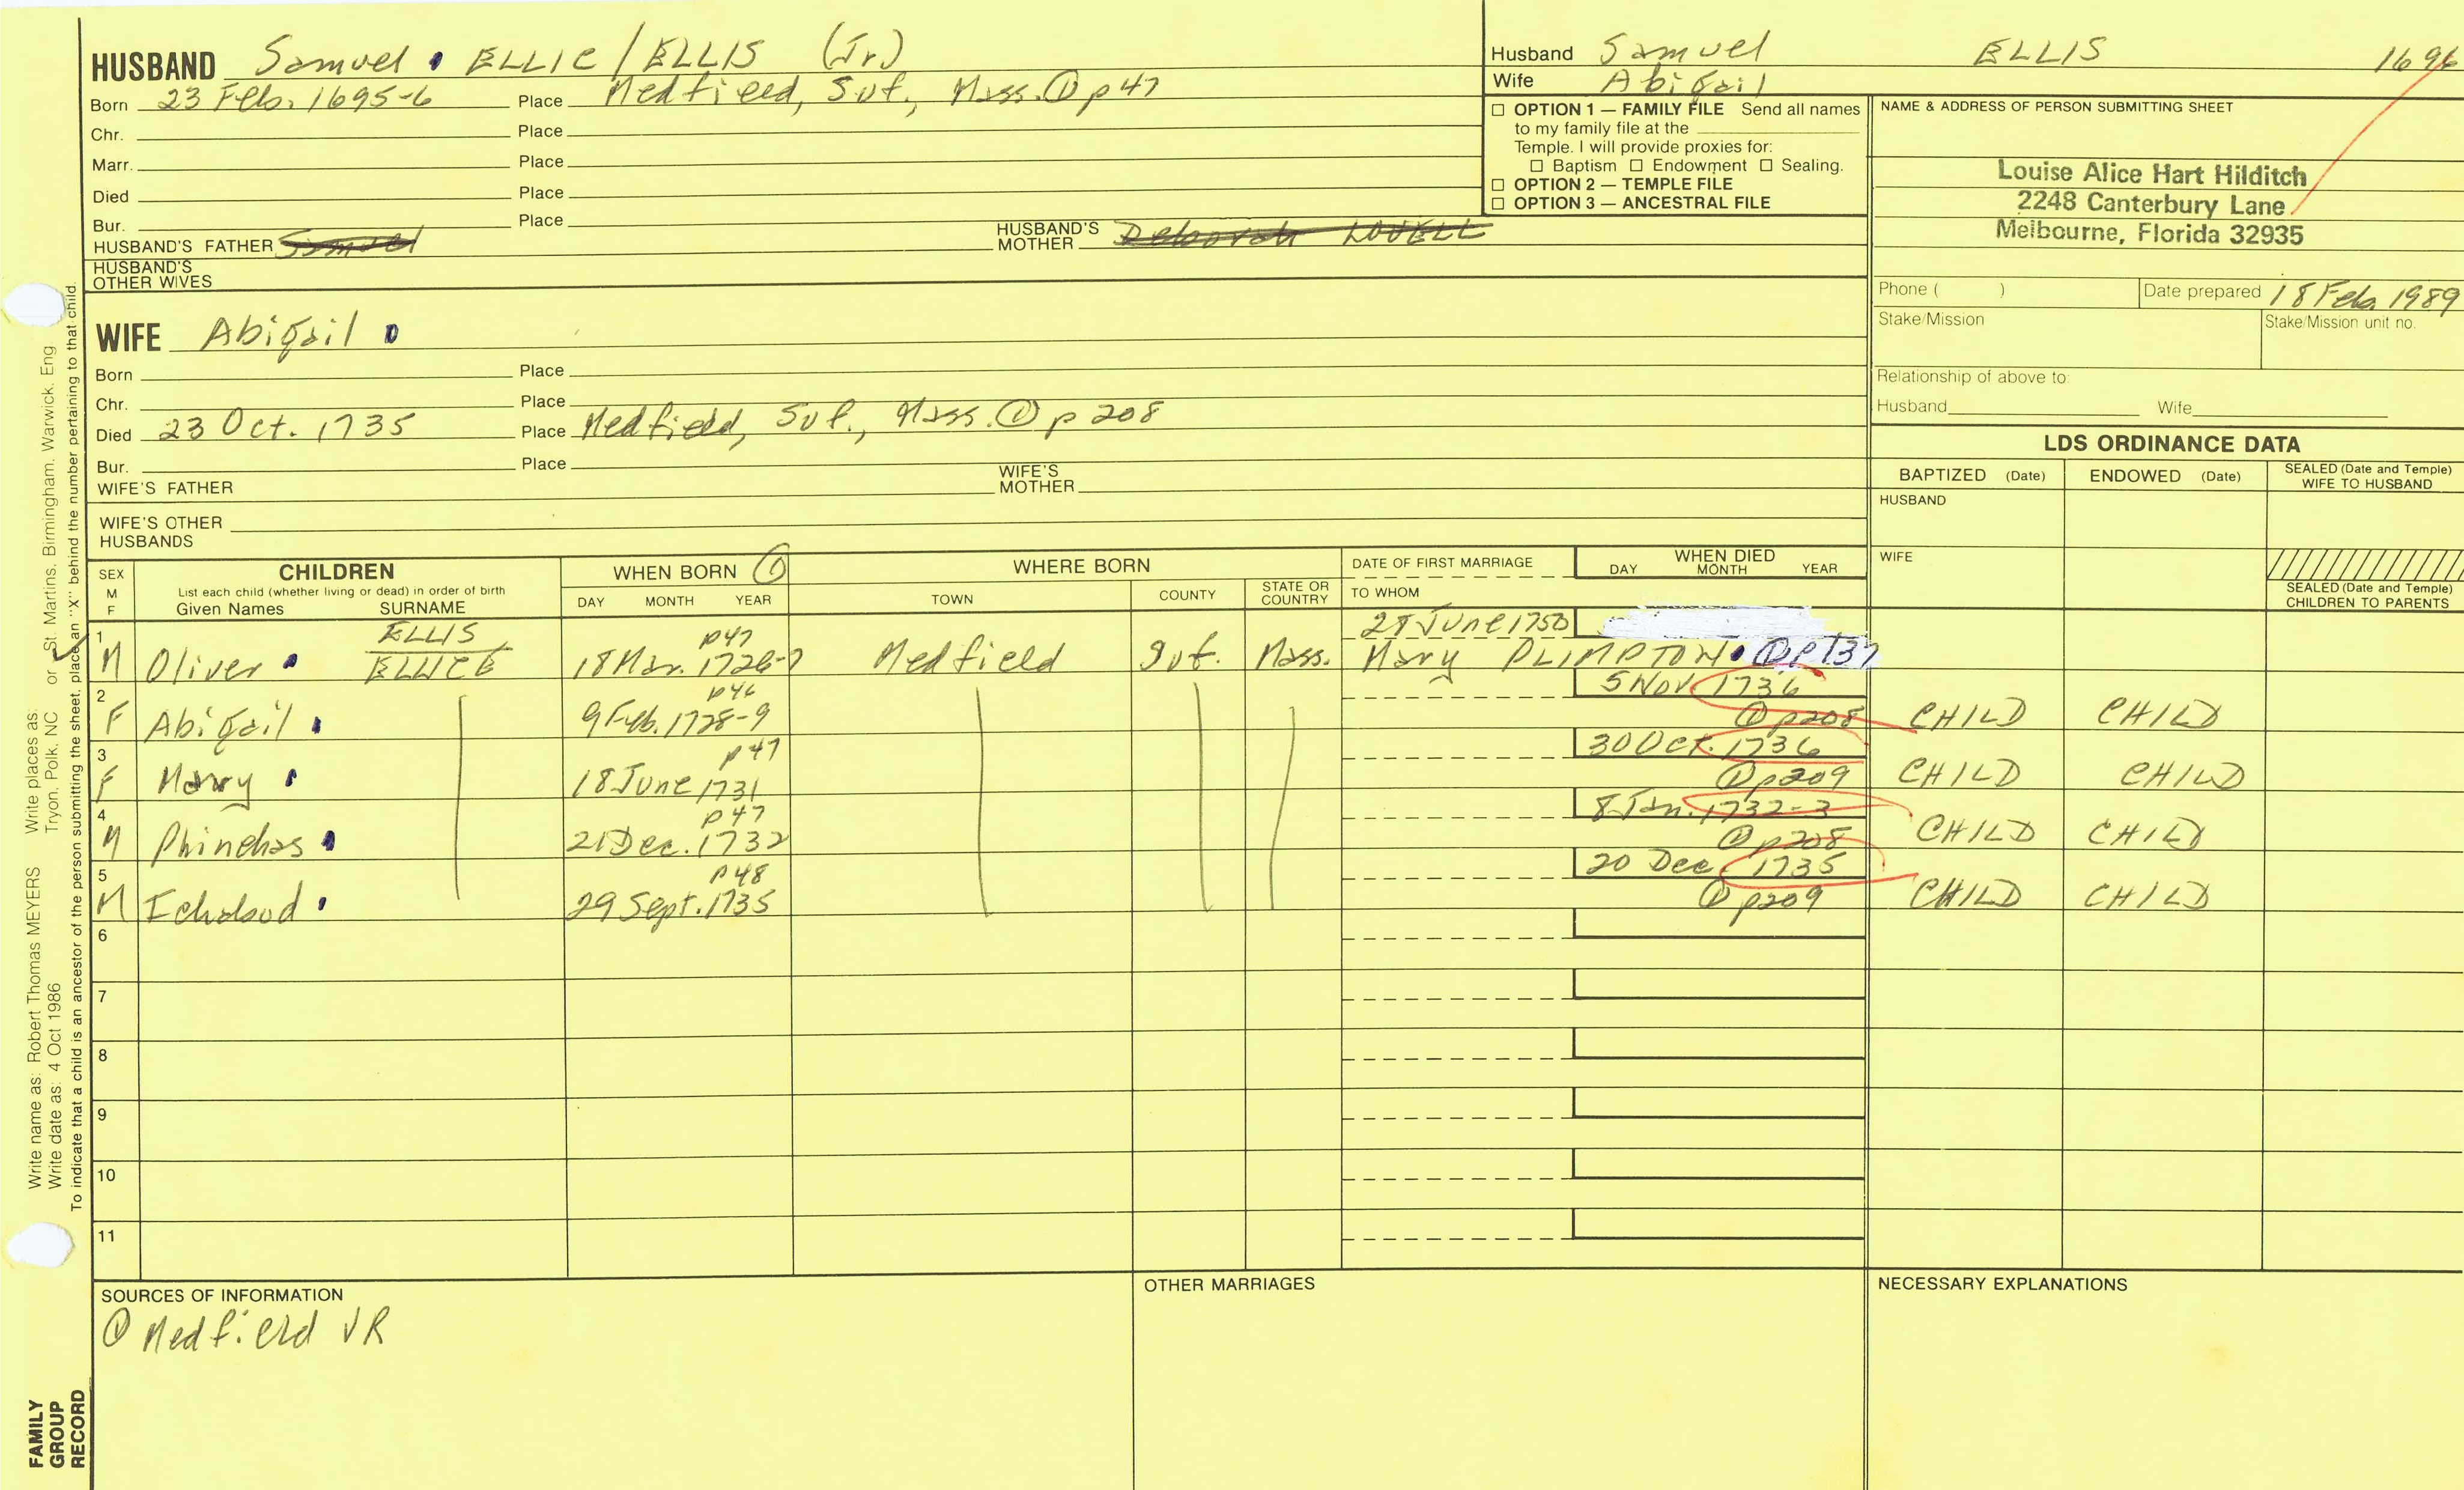 HUSBAND Samuel ELLIC / ELLIS (Jr)
Born 23 Feb. 1695-6 Place Medfield, Suf., Mass. ① p 47
Chr. Place
Marr. Place
Died Place
Bur. Place
HUSBAND'S FATHER Samuel HUSBAND'S MOTHER Deborah LOVELL
HUSBAND'S OTHER WIVES
WIFE Abigail
Born Place
Chr. Place
Died 23 Oct. 1735 Place Medfield, Suf., Mass. ① p 208
Bur. Place
WIFE'S FATHER WIFE'S MOTHER
WIFE'S OTHER HUSBANDS
Husband Samuel ELLIS 1696
Wife Abigail
☐ OPTION 1 — FAMILY FILE Send all names
to my family file at the
Temple. I will provide proxies for:
☐ Baptism ☐ Endowment ☐ Sealing.
☐ OPTION 2 — TEMPLE FILE
☐ OPTION 3 — ANCESTRAL FILE
NAME & ADDRESS OF PERSON SUBMITTING SHEET
Louise Alice Hart Hilditch
2248 Canterbury Lane
Melbourne, Florida 32935
Phone ( ) Date prepared 18 Feb. 1989
Stake/Mission Stake/Mission unit no.
Relationship of above to:
Husband Wife
LDS ORDINANCE DATA
BAPTIZED (Date) ENDOWED (Date) SEALED (Date and Temple) WIFE TO HUSBAND
HUSBAND
WIFE
SEALED (Date and Temple) CHILDREN TO PARENTS
SEX M F
CHILDREN
List each child (whether living or dead) in order of birth
Given Names SURNAME
WHEN BORN ①
DAY MONTH YEAR
WHERE BORN
TOWN COUNTY STATE OR COUNTRY
DATE OF FIRST MARRIAGE
TO WHOM
WHEN DIED
DAY MONTH YEAR
1 ELLIS p47 28 June 1750
M Oliver ELLICE 18 Mar. 1726-7 Medfield Suf. Mass. Mary PLIMPTON ① p 137
2 p46 5 Nov. 1736
F Abigail 9 Feb. 1728-9 ① p208 CHILD CHILD
3 p47 30 Oct. 1736
F Mary 18 June 1731 ① p209 CHILD CHILD
4 p47 8 Jan. 1732-3
M Phinehas 21 Dec. 1732 ① p208 CHILD CHILD
5 p48 20 Dec. 1735
M Ichabod 29 Sept. 1735 ① p209 CHILD CHILD
6
7
8
9
10
11
SOURCES OF INFORMATION
① Medfield VR
OTHER MARRIAGES
NECESSARY EXPLANATIONS
Write name as: Robert Thomas MEYERS Write places as:
Write date as: 4 Oct 1986 Tryon, Polk, NC or St. Martins, Birmingham, Warwick, Eng
To indicate that a child is an ancestor of the person submitting the sheet, place an "X" behind the number pertaining to that child.
FAMILY
GROUP
RECORD